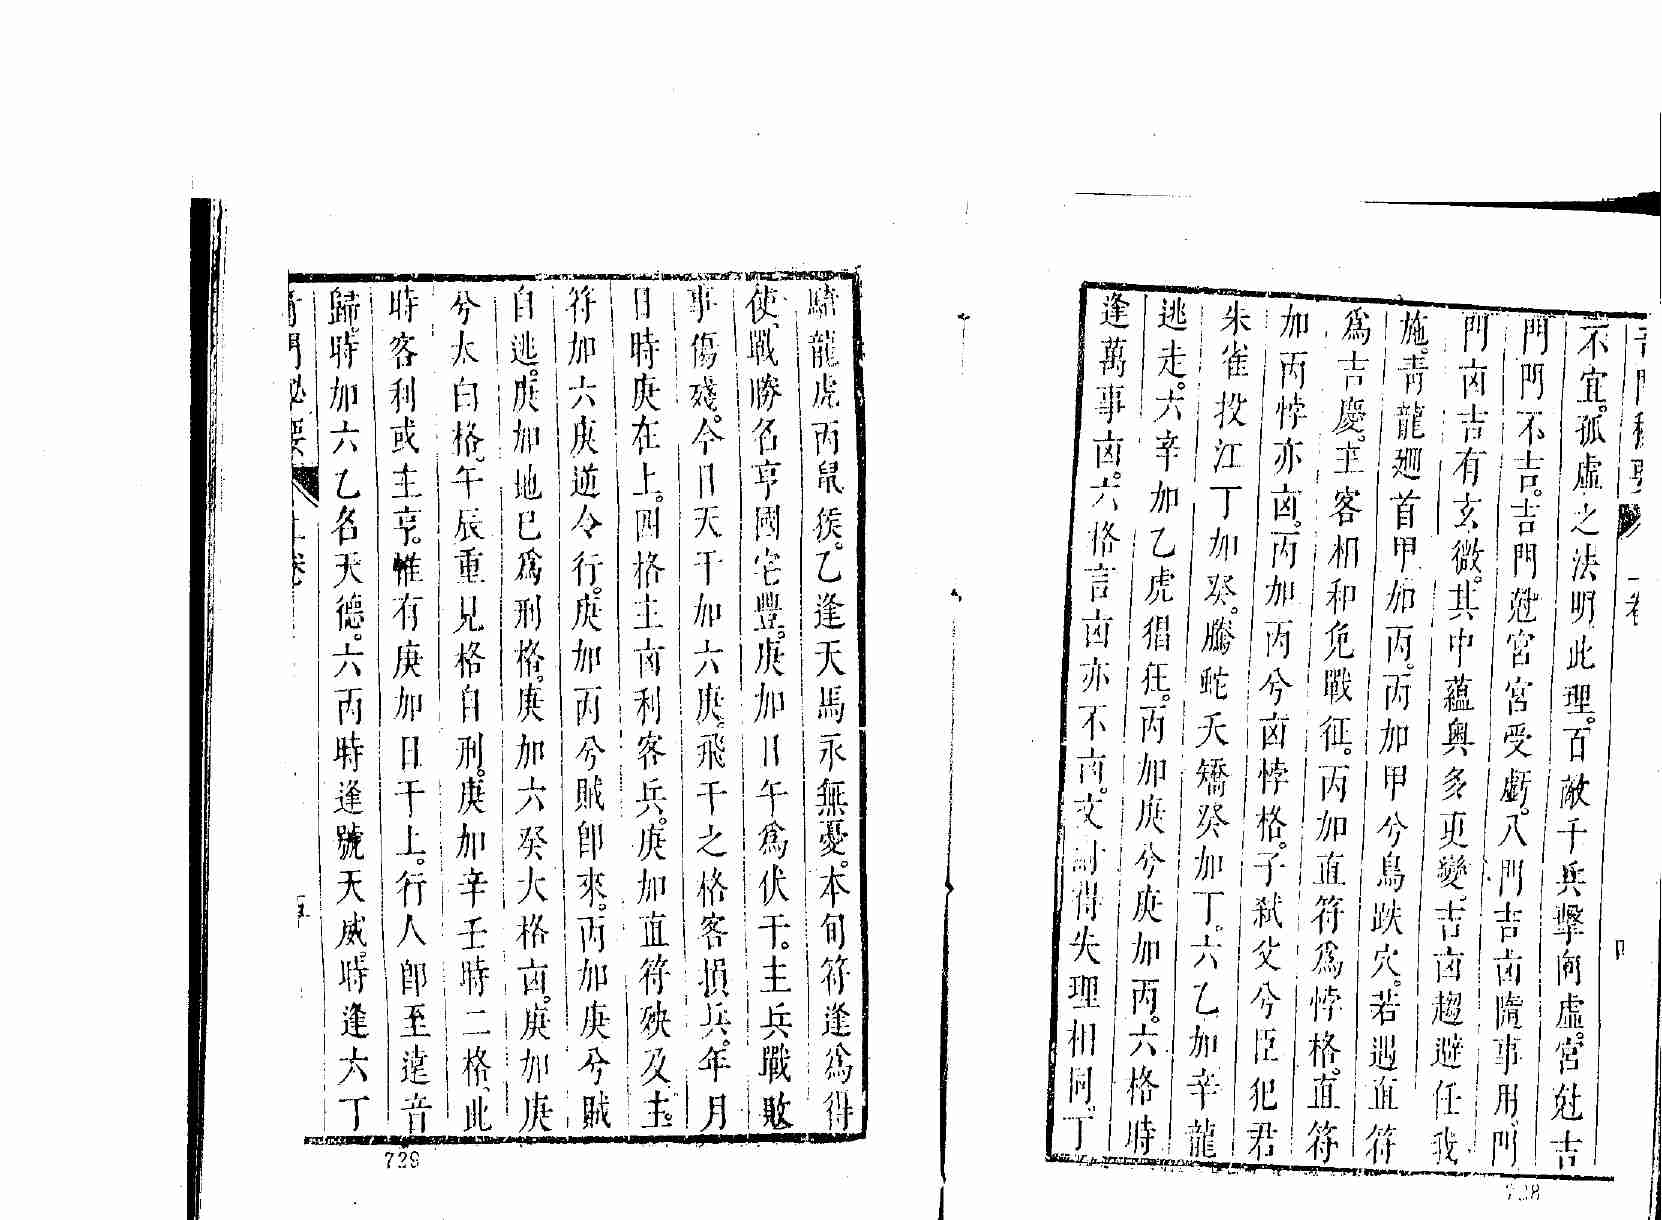 奇門秘要 一卷 四
不宜。孤虛之法明此理。百敵千兵擊向虛。宮尅吉
門門不吉。吉門尅宮宮受虧。八門吉凶隨事用。門
門凶吉有玄微。其中蘊奧多更變。吉凶趨避任我
施。青龍廻首甲加丙。丙加甲兮鳥跌穴。若遇直符
爲吉慶。主客相和免戰征。丙加直符爲悖格。直符
加丙悖亦凶。丙加丙兮凶悖格。子弒父兮臣犯君
朱雀投江丁加癸。騰蛇夭矯癸加丁。六乙加辛龍
逃走。六辛加乙虎猖狂。丙加庚兮庚加丙。六格時
逢萬事凶。六格言凶亦不凶。文 得失理相同。丁
騎龍虎丙鼠猴。乙逢天馬永無憂。本旬符逢爲得
使、戰勝名亨國宅豐。庚加日午爲伏干。主兵戰敗
事傷殘。今日天干加六庚。飛干之格客損兵。年月
日時庚在上。四格主凶利客兵。庚加直符殃及主。
符加六庚逆令行。庚加丙兮賊卽來。丙加庚兮賊
自逃。庚加地巳爲刑格。庚加六癸大格凶。庚加庚
兮太白格。午辰重見格自刑。庚加辛壬時二格、此
時客利或主亨。惟有庚加日干上。行人卽至遠音
歸。時加六乙名天德。六丙時逢號天威。時逢六丁
奇門秘要 上卷 五
729
728